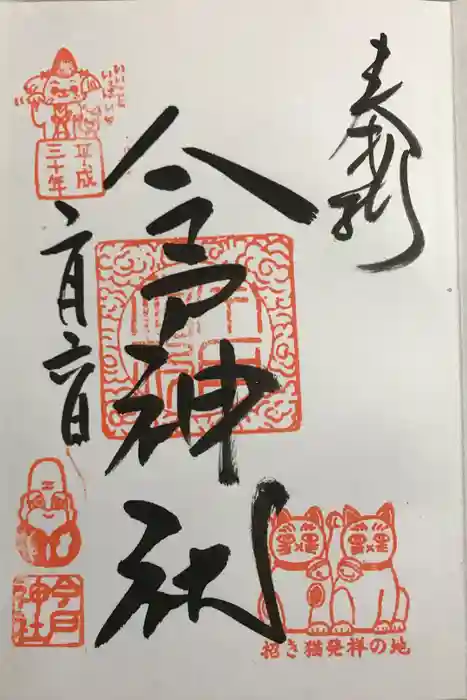 奉拝
今戸神社
いいこと
いっぱい
平成
三十年
今戸
神社
招き猫発祥の地